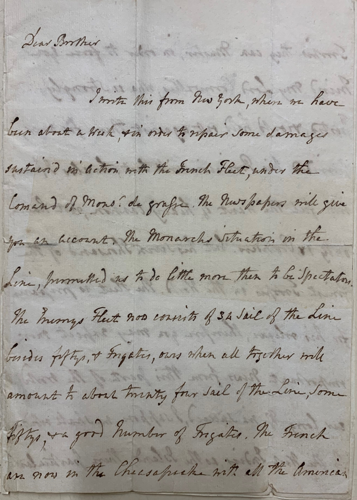 Dear Brother
I wrote this from New York, where we have
been about a Week, & in order to repair some damages
sustain'd in Action with the French Fleet, under the
Comand of Monsr. de grasse. The Newspapers will give
you an account. The Monarchs Situation in the
Line, permitted us to do little more then to be Spectators
The Enemys Fleet now consists of 34 Sail of the Line
besides fiftys, & Frigates, ours when all together will
amount to about twenty four sail of the Line, some
fiftys, & a good Number of Frigates. The French
are now in the Cheasapeake with all the American